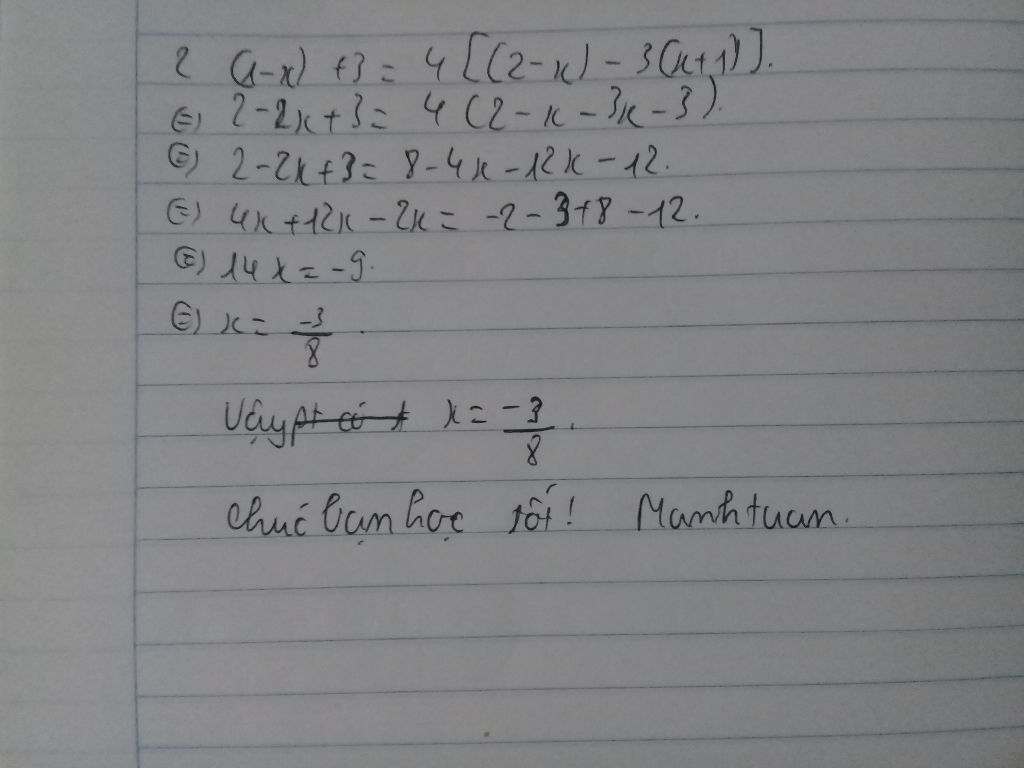 2 (1-x) +3 = 4[(2-x) - 3(x+1)].
⇔) 2-2x+3= 4(2-x-3x-3).
⇔) 2-2x+3= 8-4x-12x-12.
⇔) 4x+12x-2x= -2-3+8-12.
⇔) 14x=-9.
⇔) x= -3/8.
Vậy pt có t x= -3/8.
Chúc bạn học tốt! Manhtuan.